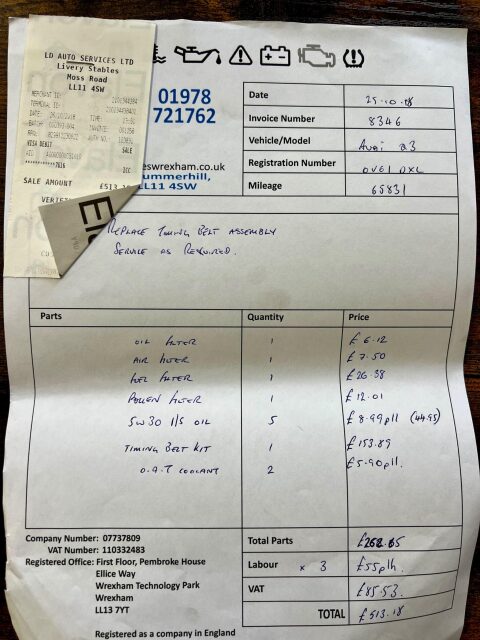 LD AUTO SERVICES LTD
Livery Stables
Moss Road
LL11 4SW
MERCHANT ID:
TERMINAL ID:
DATE:
TIME:
BATCH:
INVOICE:
AUTH NO:
VISA DEBIT
SALE
AID:
ICC
SALE AMOUNT
01978
721762
eswrexham.co.uk
ummerhill,
LL11 4SW
Date 25.10.18
Invoice Number 8346
Vehicle/Model Audi a3
Registration Number OV61 DXL
Mileage 65831
REPLACE TIMING BELT ASSEMBLY
SERVICE AS REQUIRED.
Parts Quantity Price
OIL FILTER 1 £6.12
AIR FILTER 1 £7.50
FUEL FILTER 1 £26.38
POLLEN FILTER 1 £12.01
5W30 l/s OIL 5 £8.99pll (44.95)
TIMING BELT KIT 1 £153.89
O.A.T COOLANT 2 £5.90pll.
Company Number: 07737809
VAT Number: 110332483
Registered Office: First Floor, Pembroke House
Ellice Way
Wrexham Technology Park
Wrexham
LL13 7YT
Registered as a company in England
Total Parts £262.65
Labour x 3 £55plh.
VAT £85.53
TOTAL £513.18